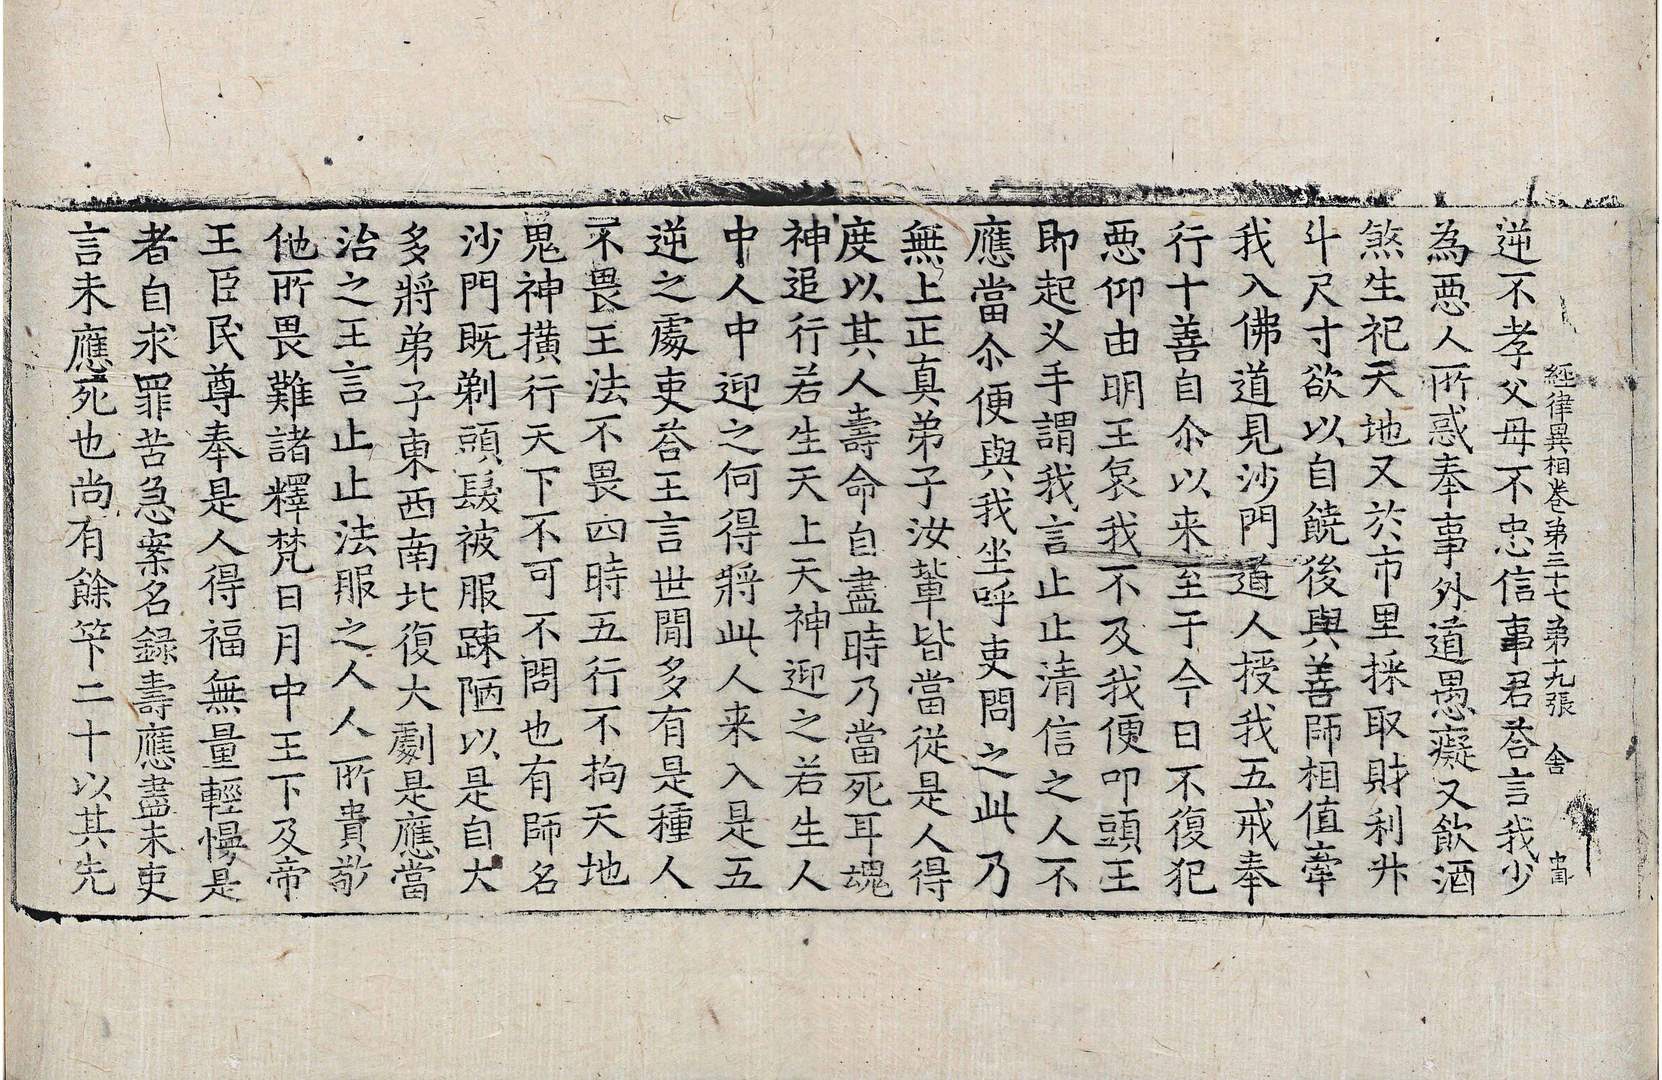 經律異相卷第三十七第十九張 舍
逆不孝父母不忠信事君荅言我少
為惡人所惑奉事外道愚癡又飲酒
煞生祀天地又於市里採取財利升
斗尺寸欲以自饒後與善師相值牽
我入佛道見沙門道人授我五戒奉
行十善自尒以来至于今日不復犯
惡仰由明王哀我不及我便叩頭王
即起叉手謂我言止止清信之人不
應當尒便與我坐呼吏問之此乃
無上正真弟子汝輩皆當從是人得
度以其人壽命自盡時乃當死耳魂
神追行若生天上天神迎之若生人
中人中迎之何得將此人来入是五
逆之處吏荅王言世閒多有是種人
不畏王法不畏四時五行不拘天地
鬼神橫行天下不可不問也有師名
沙門既剃頭髮被服踈陋以是自大
多將弟子東西南北復大劇是應當
治之王言止止法服之人人所貴敬
他所畏難諸釋梵日月中王下及帝
王臣民尊奉是人得福無量輕慢是
者自求罪苦急案名録壽應盡未吏
言未應死也尚有餘筭二十以其先